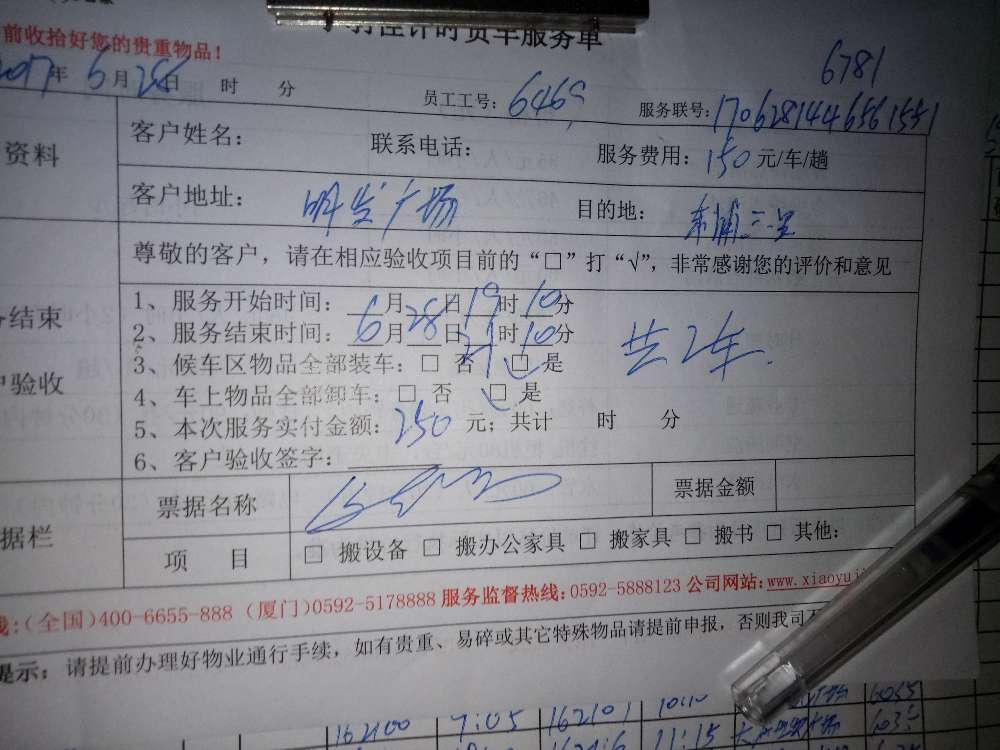 计时货车服务单
前收拾好您的贵重物品！
6781
2017年 6月28日 时 分
员工工号： 服务联号：1706281446561551
资料
客户姓名： 联系电话： 服务费用：150元/车/趟
客户地址：明发广场 目的地：
尊敬的客户，请在相应验收项目前的“□”打“√”，非常感谢您的评价和意见
结束
验收
1、服务开始时间：6月28日19时10分
2、服务结束时间：6月28日21时10分
共2车
3、候车区物品全部装车：□ 否 □ 是
4、车上物品全部卸车：□ 否 □ 是
5、本次服务实付金额：250元；共计 时 分
6、客户验收签字：
据栏
票据名称 票据金额
项 目 □ 搬设备 □ 搬办公家具 □ 搬家具 □ 搬书 □ 其他：
线：（全国）400-6655-888（厦门）0592-5178888 服务监督热线：0592-5888123 公司网站：www.xiaoyu
提示：请提前办理好物业通行手续，如有贵重、易碎或其它特殊物品请提前申报，否则我司
162100 7:05 162101 10:10
11:15